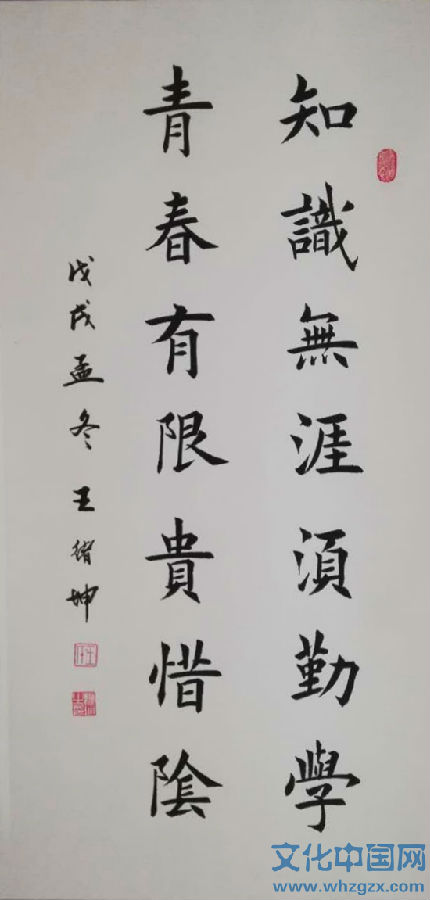 知識無涯須勤學
青春有限貴惜陰
戊戌孟冬王緒坤
文化中国网
www.whzgzx.com